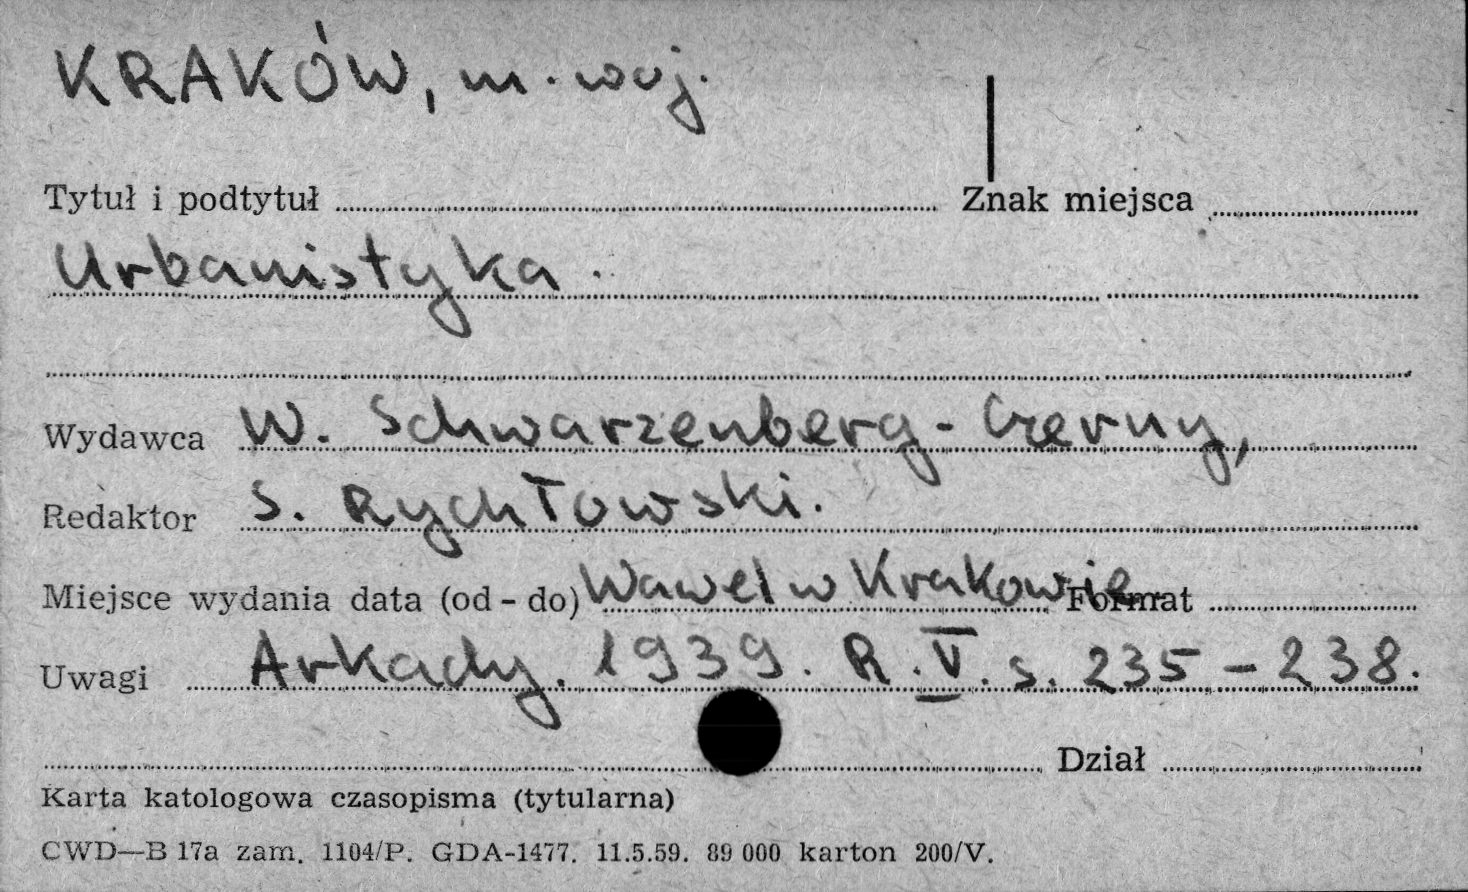 KRAKÓW, m. woj.
Tytuł i podtytuł Znak miejsca
Urbanistyka.
Wydawca W. Schwarzenberg-Czerny,
Redaktor S. Rychłowski.
Miejsce wydania data (od-do) Wawel w Krakowie Format
Uwagi Arkady. 1939. R. V. s. 235-238.
Dział
Karta katologowa czasopisma (tytularna)
CWD—B 17a zam. 1104/P. GDA-1477. 11.5.59. 89 000 karton 200/V.